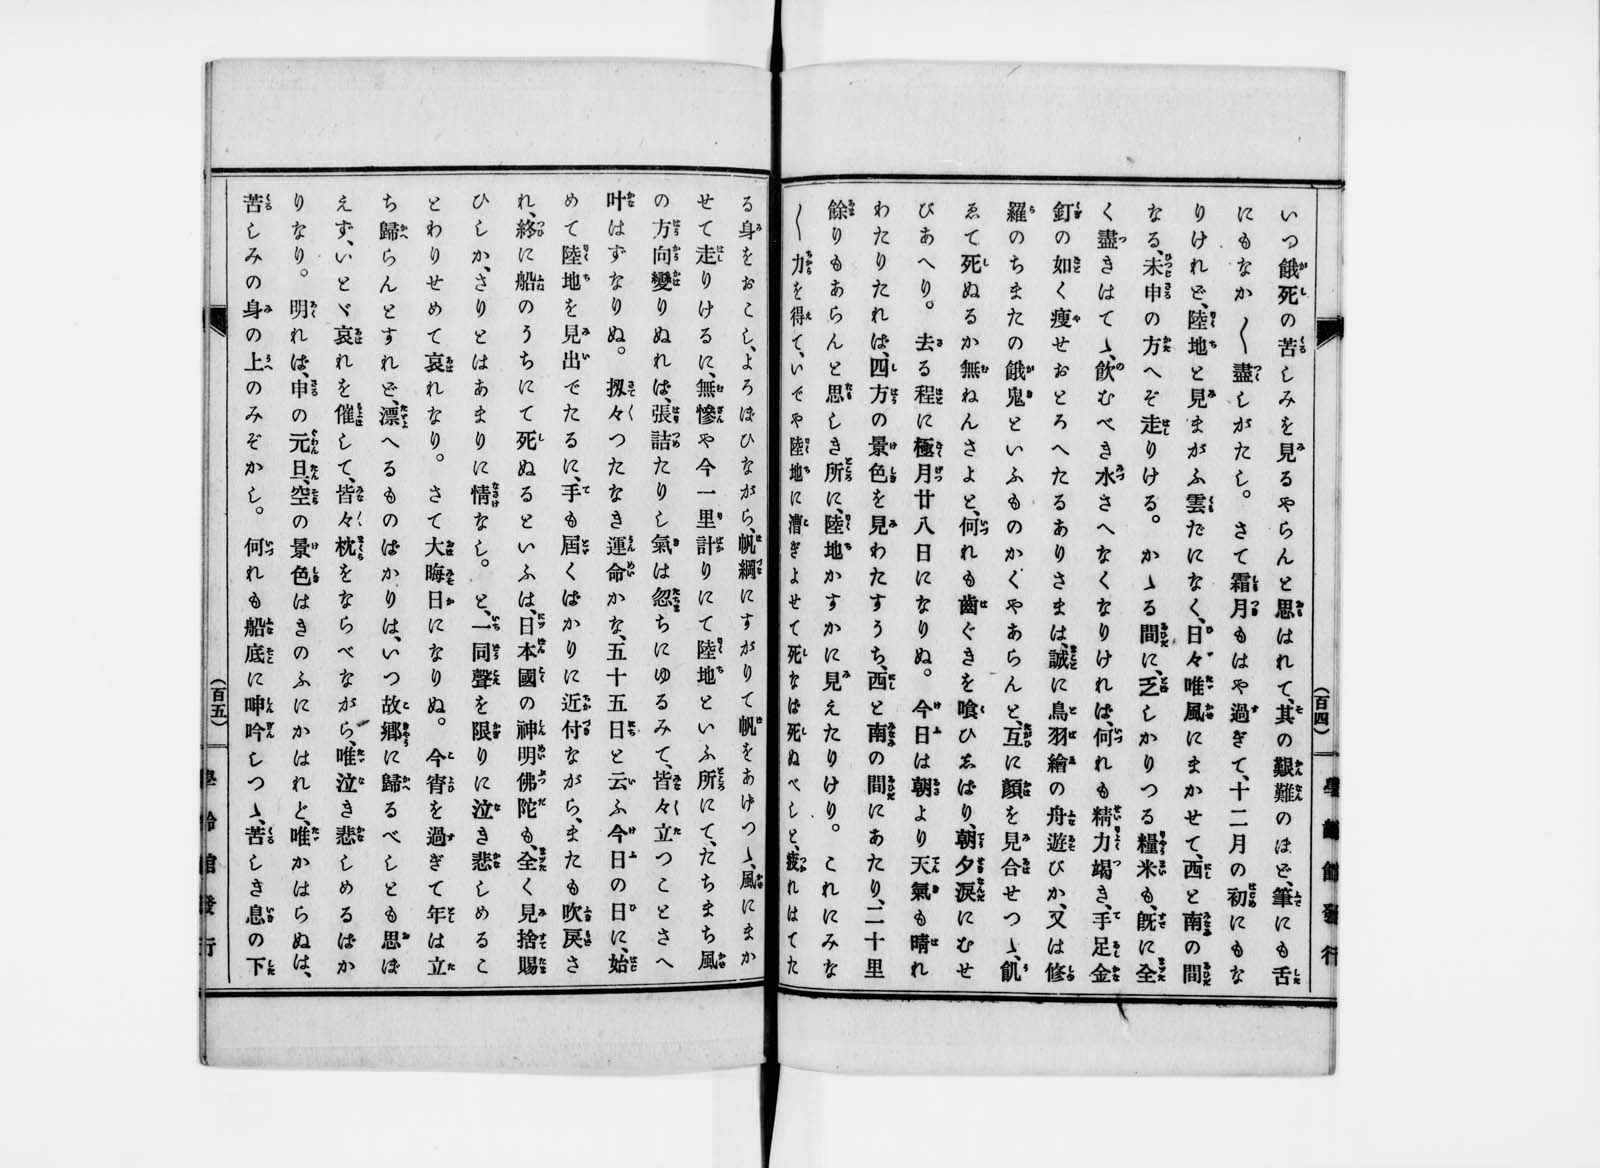 いつ餓死の苦しみを見るやらんと思はれて、其の艱難のほど、筆にも舌
にもなか〳〵盡しがたし。さて霜月もはや過ぎて、十二月の初にもな
りけれど、陸地と見まがふ雲だになく、日々唯風にまかせて、西と南の間
なる、未申の方へぞ走りける。かゝる間に、乏しかりつる糧米も、既に全
く盡きはてゝ、飲むべき水さへなくなりければ、何れも精力竭き、手足金
釘の如く痩せおとろへたるありさまは、誠に鳥羽繪の舟遊びか、又は修
羅のちまたの餓鬼といふものかくやあらんと、互に顔を見合せつゝ、飢
ゑて死ぬるか無ねんさよと、何れも齒ぐきを喰ひゑばり、朝夕淚にむせ
びあへり。去る程に極月廿八日になりぬ。今日は朝より天氣も晴れ
わたりたれば、四方の景色を見わたすうち、西と南の間にあたり、二十里
餘りもあらんと思しき所に、陸地かすかに見えたりけり。これにみな
〳〵力を得て、いでや陸地に漕ぎよせて死なば死ぬべしと、疲れはてた
(百四)
る身をおこし、よろぼひながら、帆綱にすがりて帆をあげつゝ、風にまか
せて走りけるに、無慘や今一里計りにて陸地といふ所にて、たちまち風
の方向變りぬれば、張詰たりし氣は忽ちにゆるみて、皆々立つことさへ
叶はずなりぬ。扨々つたなき運命かな、五十五日と云ふ今日の日に、始
めて陸地を見出でたるに、手も屆くばかりに近付ながら、また吹戻さ
れ、終に船のうちにて死ぬるといふは、日本國の神明佛陀も、全く見捨賜
ひしか、さりとはあまりに情なし。と、一同聲を限りに泣き悲しめるこ
とわりせめて哀れなり。さて大晦日になりぬ。今宵を過ぎて年は立
ち歸らんとすれど、漂へるものばかりは、いつ故鄉に歸るべしとも思ぼ
えず、いとゞ哀れを催して、皆々枕をならべながら、唯泣き悲しめるばか
りなり。明れば、申の元旦、空の景色はきのふにかはれど、唯かはらぬは、
苦しみの身の上のみぞかし。何れも船底に呻吟しつゝ、苦しき息の下
(百五)